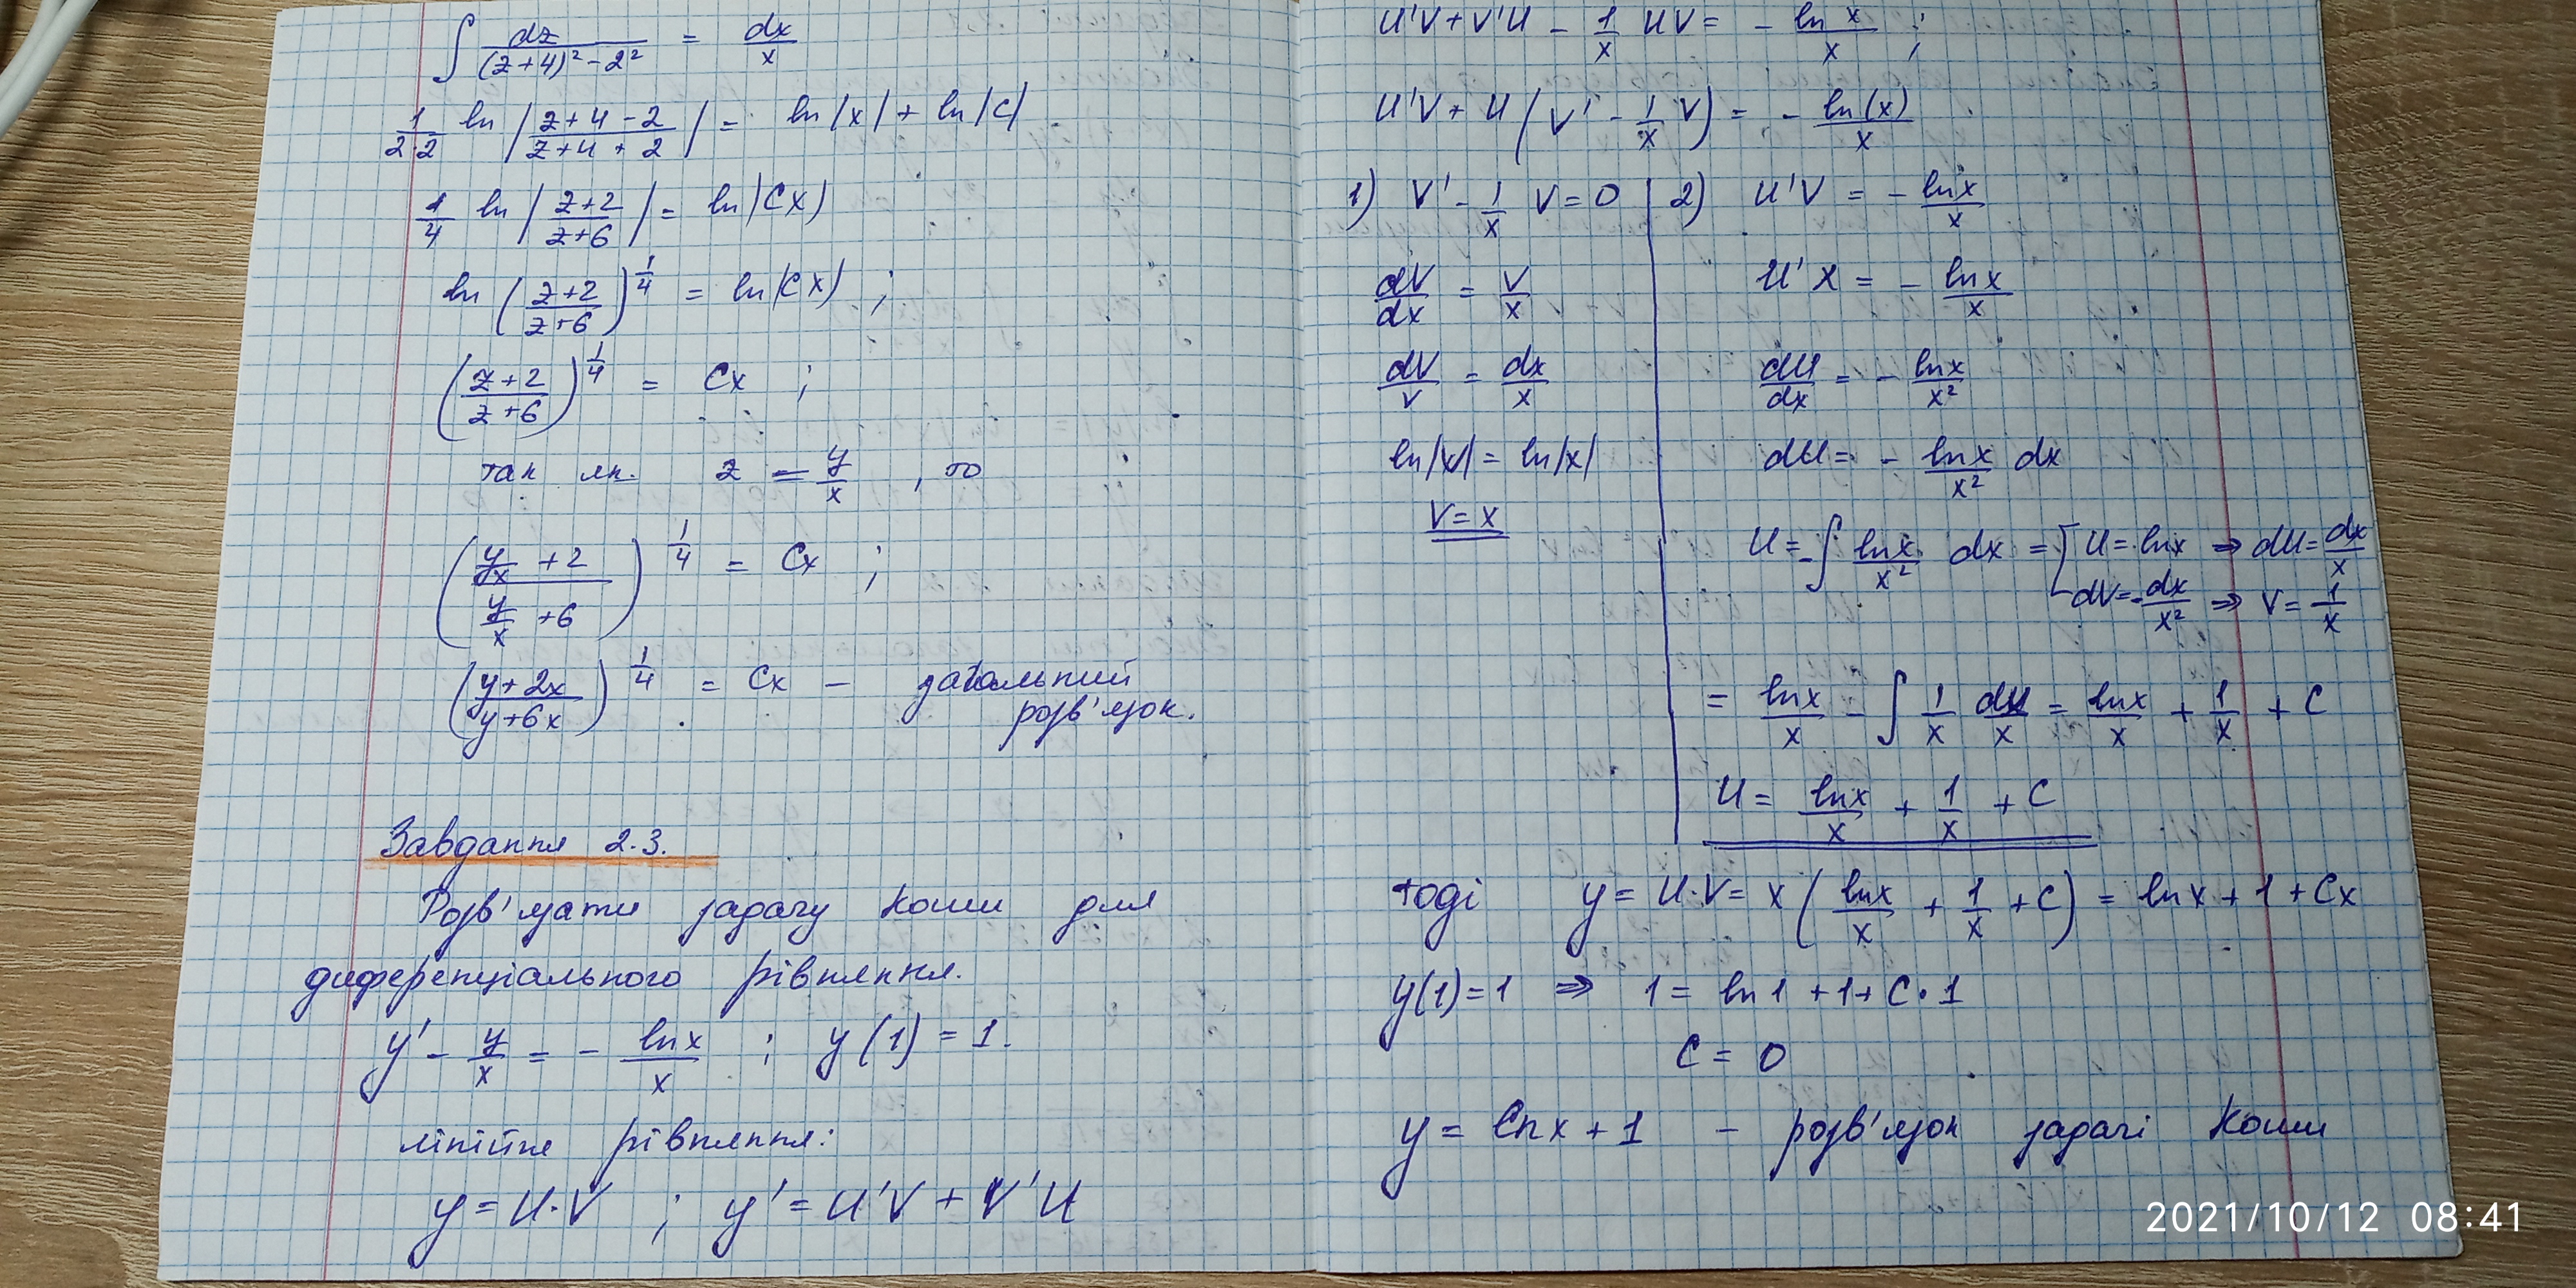 ∫ dz/((z+4)²-2²) = dx/x
1/(2·2) ln |(z+4-2)/(z+4+2)| = ln|x| + ln|C|
1/4 ln |(z+2)/(z+6)| = ln|Cx|
ln ((z+2)/(z+6))^(1/4) = ln|Cx| ;
((z+2)/(z+6))^(1/4) = Cx ;
так як z = y/x , то
((y/x +2)/(y/x +6))^(1/4) = Cx ;
((y+2x)/(y+6x))^(1/4) = Cx – загальний
розв'язок.
Завдання 2.3.
Розв'язати задачу Коши для
диференціального рівняння.
y' - y/x = - lnx/x ; y(1) = 1.
лінійне рівняння:
y = U·V ; y' = U'V + V'U
U'V + V'U - 1/x UV = - ln x/x ;
U'V + U (V' - 1/x V) = - ln(x)/x
1) V' - 1/x V = 0
dV/dx = V/x
dV/V = dx/x
ln|V| = ln|x|
V = x
2) U'V = - lnx/x
U'x = - lnx/x
dU/dx = - lnx/x²
dU = - lnx/x² dx
U = -∫ lnx/x² dx = [U = lnx ⇒ dU = dx/x
dV = -dx/x² ⇒ V = 1/x
= lnx/x - ∫ 1/x dx/x = lnx/x + 1/x + C
U = lnx/x + 1/x + C
тоді y = U·V = x (lnx/x + 1/x + C) = lnx + 1 + Cx
y(1) = 1 ⇒ 1 = ln1 + 1 + C·1
C = 0
y = lnx + 1 – розв'язок задачі Коши
2021/10/12 08:41